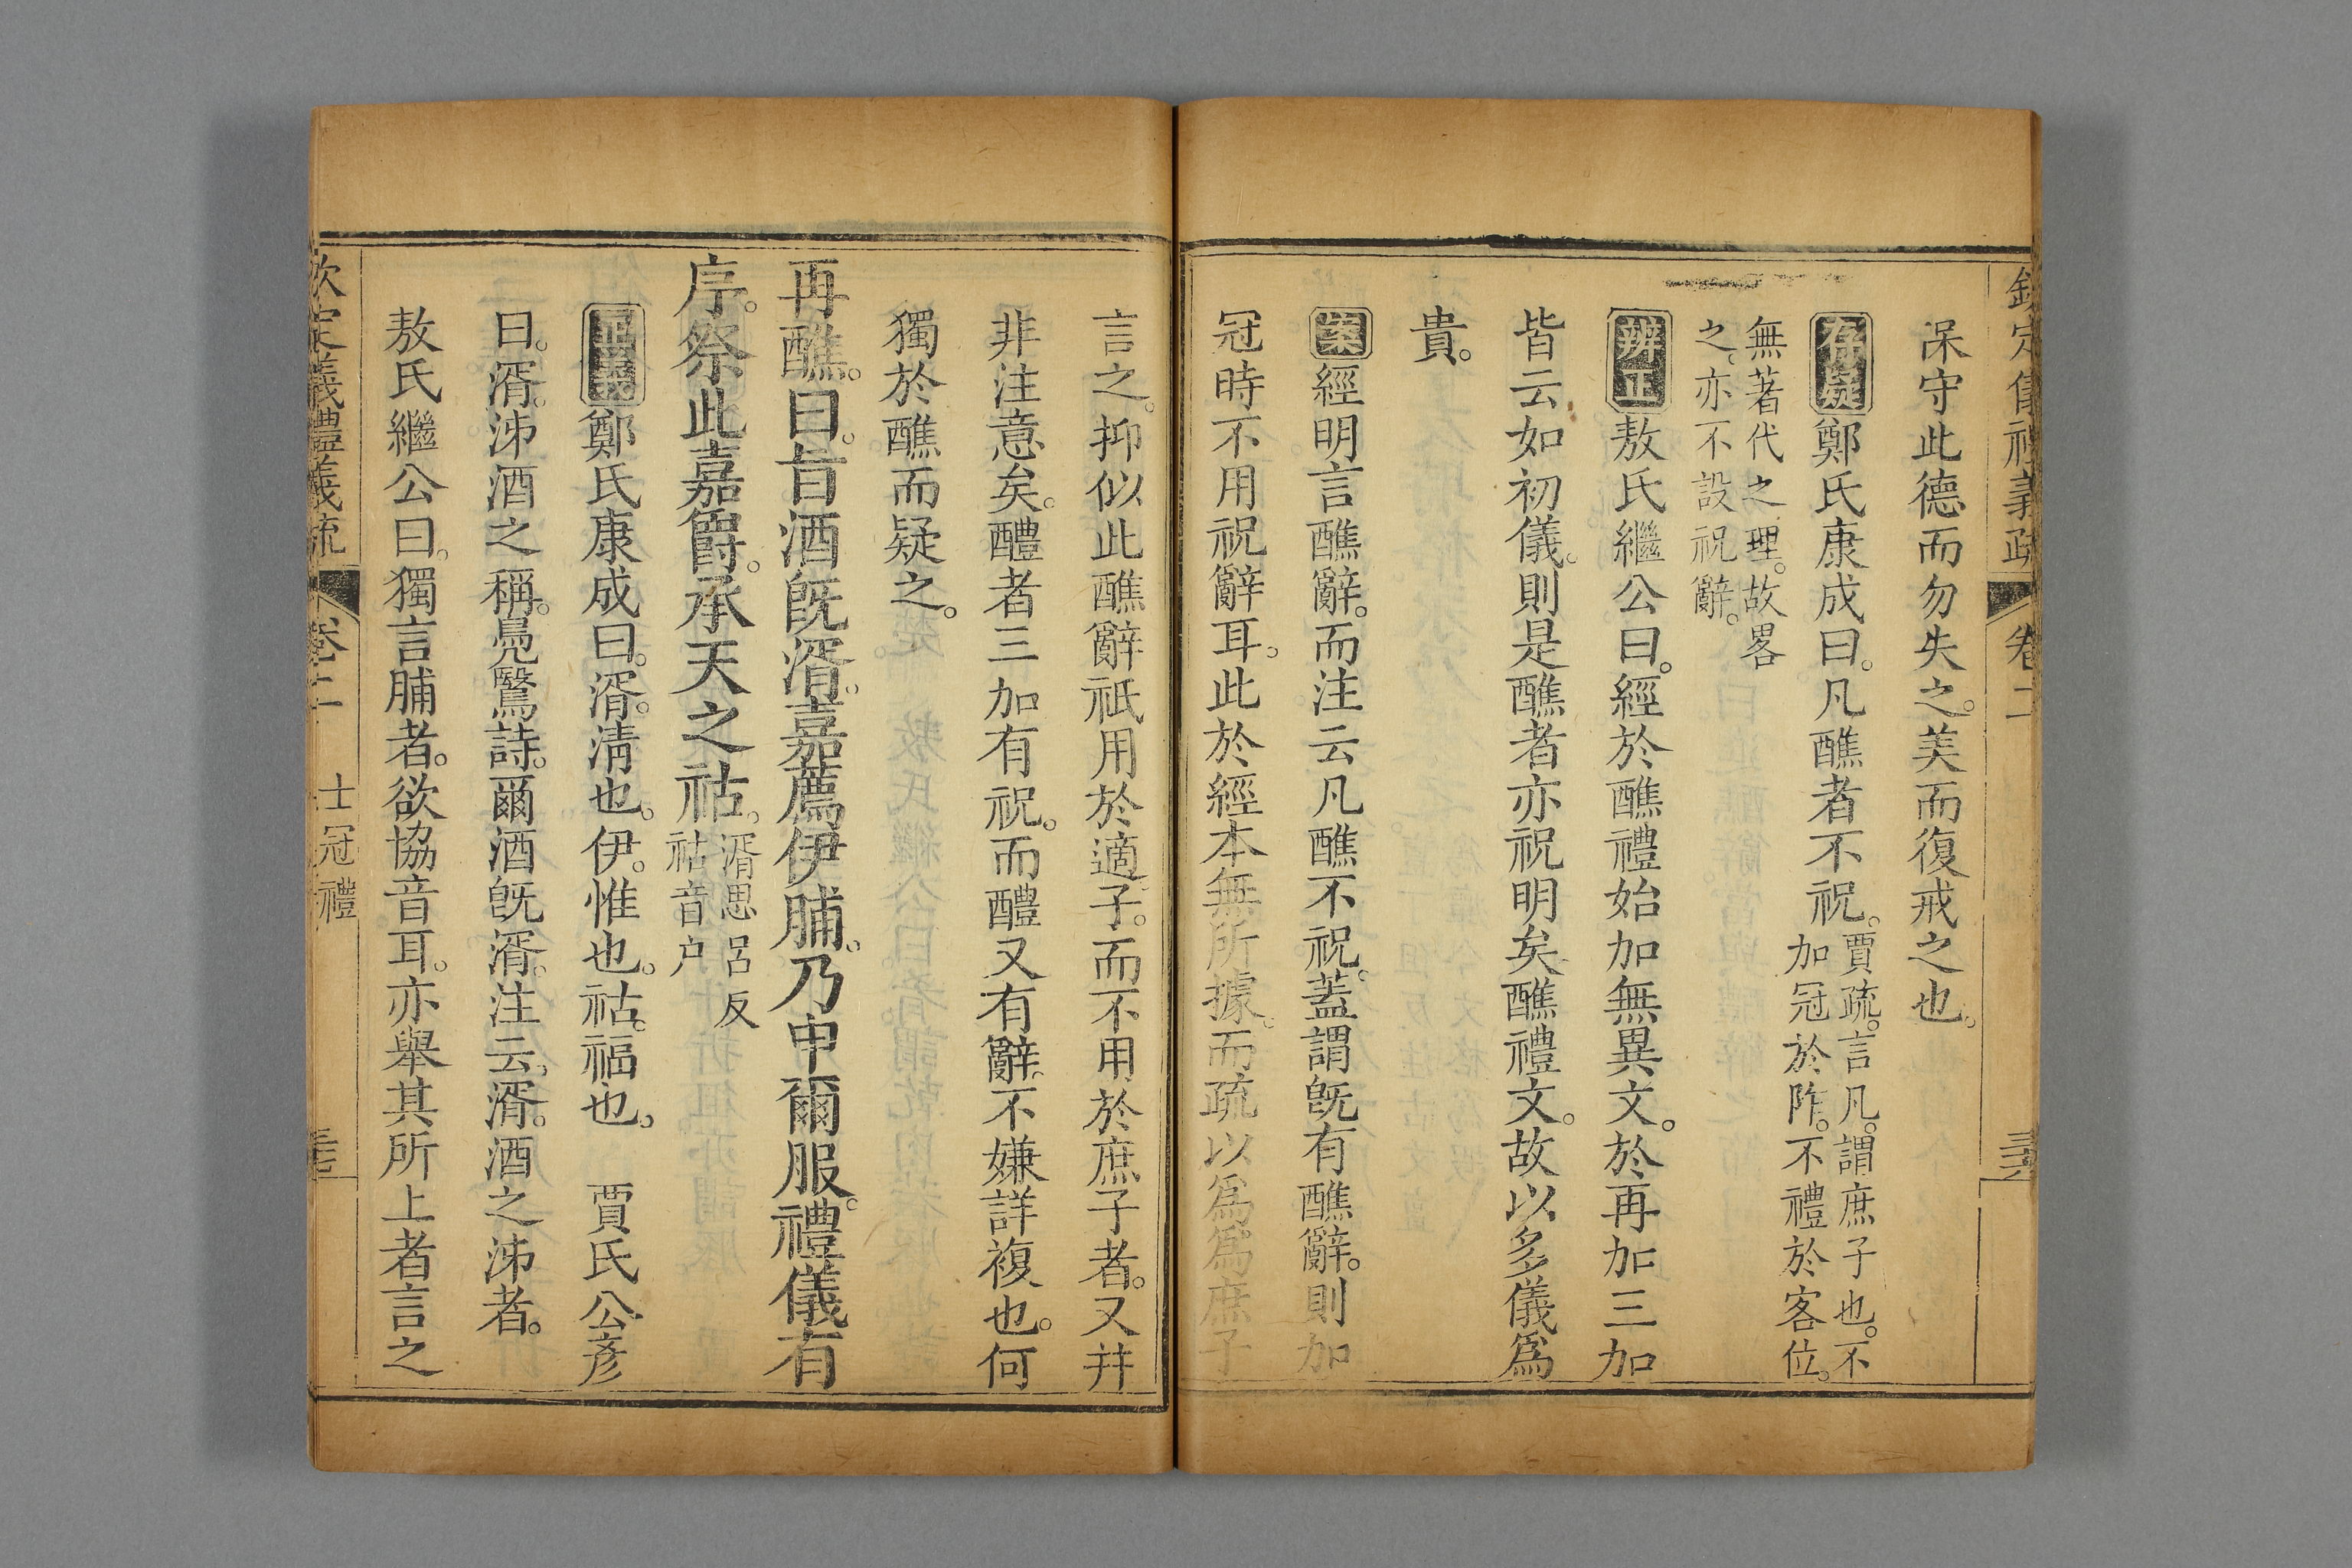 欽定儀禮義疏 卷二
保守此德而勿失之。美而復戒之也。
存疑鄭氏康成曰。凡醮者不祝。賈疏。言凡。謂庶子也。不
加冠於阼。不禮於客位。
無著代之理。故畧
之。亦不設祝辭。
辨正敖氏繼公曰。經於醮禮始加無異文。於再加三加
皆云如初儀。則是醮者亦祝明矣醮禮文。故以多儀爲
貴。
案經明言醮辭。而注云凡醮不祝。蓋謂旣有醮辭。則加
冠時不用祝辭耳。此於經本無所據。而疏以爲爲庶子
言之。抑似此醮辭祇用於適子。而不用於庶子者。又幷
非注意矣。醴者三加有祝。而醴又有辭。不嫌詳複也。何
獨於醮而疑之。
再醮。曰。旨酒旣湑。嘉薦伊脯。乃申爾服。禮儀有
序。祭此嘉爵。承天之祜。湑思呂反
祜音户
正義鄭氏康成曰。湑。清也。伊。惟也。祜。福也。 賈氏公彥
曰。湑。泲酒之稱。鳧鷖詩。爾酒旣湑。注云。湑。酒之泲者。
敖氏繼公曰。獨言脯者。欲協音耳。亦舉其所上者言之
欽定儀禮義疏 卷二 士冠禮